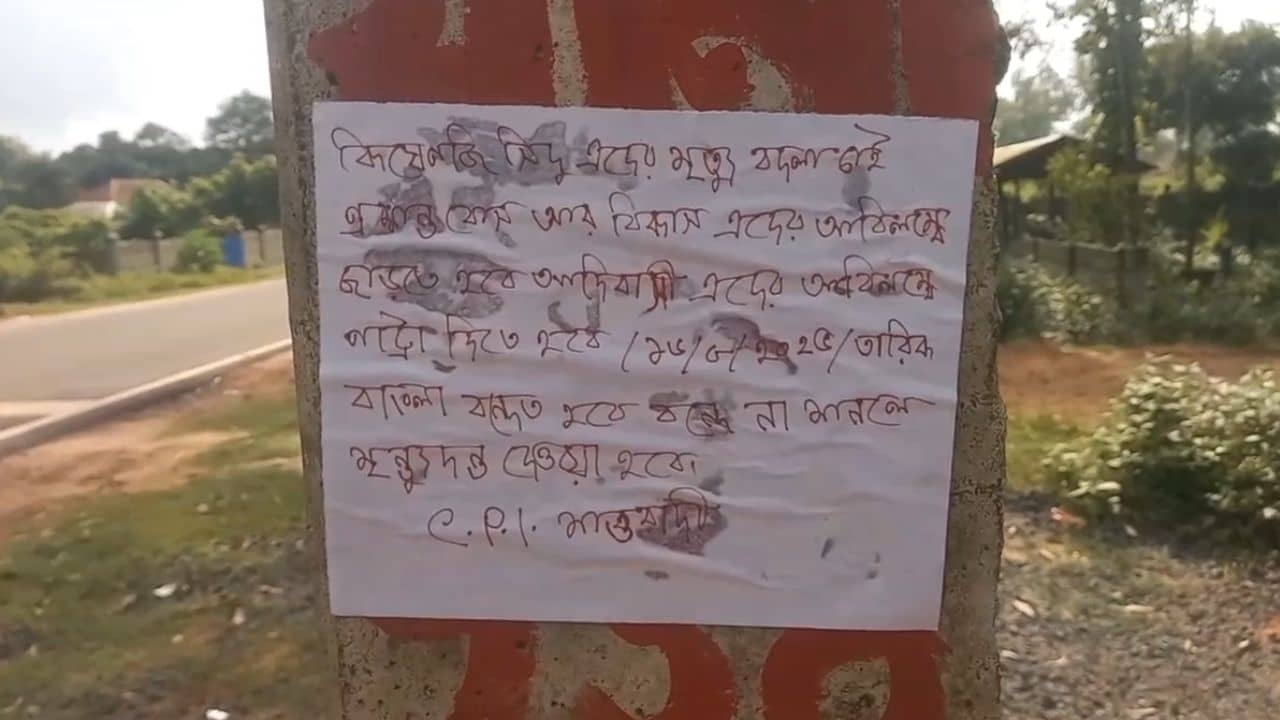 কিষেণজি সিদু এদের মৃত্যু বদলা চাই
প্রশান্ত বোস আর বিকাস এদের অবিলম্বে
ছাড়তে হবে আদিবাসী এদের অবিলম্বে
পাট্টা দিতে হবে /১৫/৮/২০২৫/তারিক
বাংলা বন্দেত হবে বন্দে না মানলে
মৃত্যুদন্ড দেওয়া হবে।
C.P.I. মাওবাদী